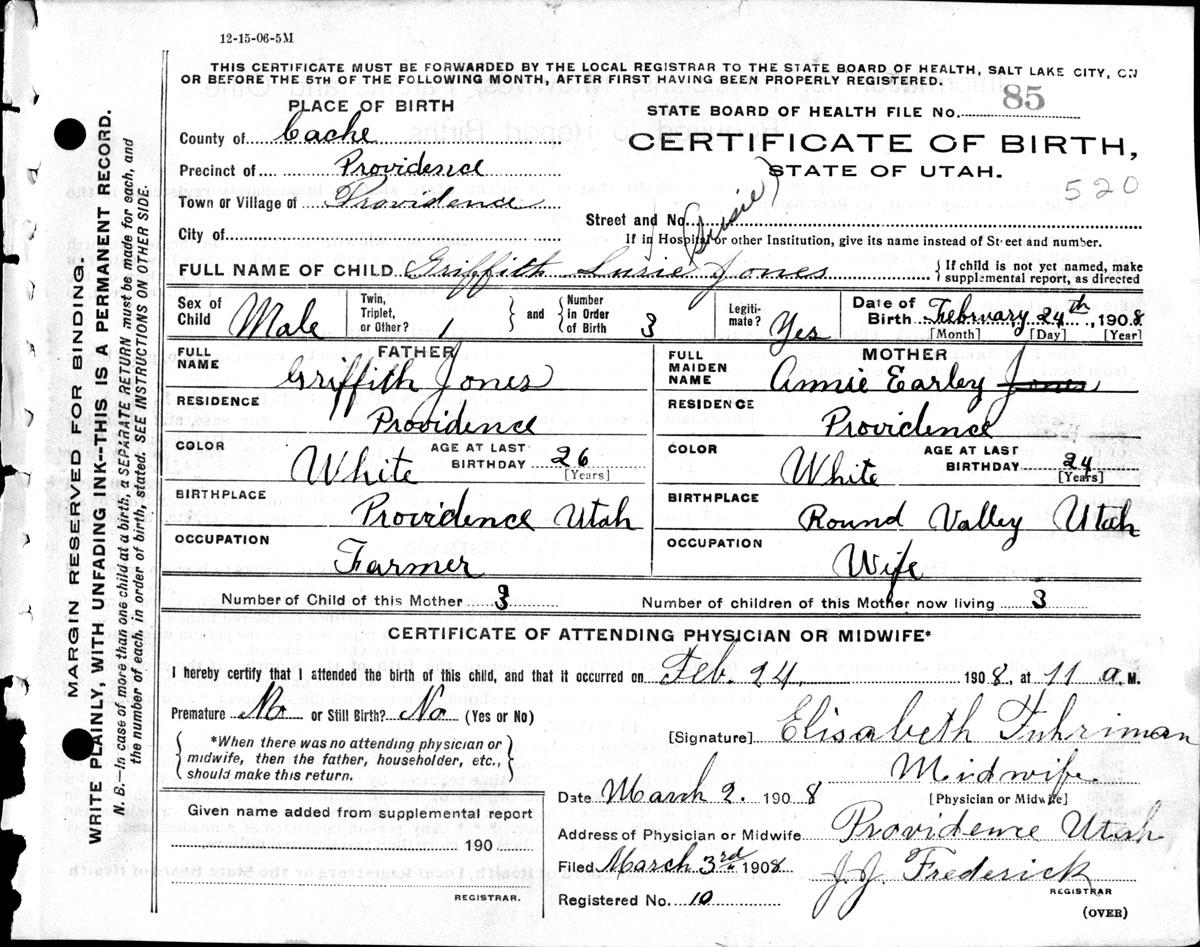 12-15-06-5M
THIS CERTIFICATE MUST BE FORWARDED BY THE LOCAL REGISTRAR TO THE STATE BOARD OF HEALTH, SALT LAKE CITY, ON
OR BEFORE THE 5TH OF THE FOLLOWING MONTH, AFTER FIRST HAVING BEEN PROPERLY REGISTERED.
PLACE OF BIRTH
STATE BOARD OF HEALTH FILE No. 85
County of Cache
CERTIFICATE OF BIRTH,
Precinct of Providence
STATE OF UTAH.
520
Town or Village of Providence
Street and No.
(Susie)
City of
If in Hospital or other Institution, give its name instead of Street and number.
FULL NAME OF CHILD Griffith Susie Jones
{If child is not yet named, make
supplemental report, as directed
Sex of Child Male
Twin, Triplet, or Other? 1
} and {
Number in Order of Birth 3
Legiti-mate? Yes
Date of Birth February 24th, 1908
[Month] [Day] [Year]
FATHER
FULL NAME Griffith Jones
RESIDENCE Providence
COLOR White
AGE AT LAST BIRTHDAY 26
[Years]
BIRTHPLACE Providence Utah
OCCUPATION Farmer
MOTHER
FULL MAIDEN NAME Annie Earley Jones
RESIDENCE Providence
COLOR White
AGE AT LAST BIRTHDAY 24
[Years]
BIRTHPLACE Round Valley Utah
OCCUPATION Wife
Number of Child of this Mother 3
Number of children of this Mother now living 3
CERTIFICATE OF ATTENDING PHYSICIAN OR MIDWIFE*
I hereby certify that I attended the birth of this child, and that it occurred on Feb. 24, 1908, at 11 a. M.
Premature No or Still Birth? No (Yes or No)
{*When there was no attending physician or
midwife, then the father, householder, etc.,
should make this return.}
[Signature] Elisabeth Fuhriman
Midwife
[Physician or Midwife]
Date March 2. 1908
Address of Physician or Midwife Providence Utah
Filed March 3rd 1908
J.J. Frederick
REGISTRAR
Registered No. 10
(OVER)
Given name added from supplemental report
190
REGISTRAR.
MARGIN RESERVED FOR BINDING.
WRITE PLAINLY, WITH UNFADING INK--THIS IS A PERMANENT RECORD.
N. B.—In case of more than one child at a birth, a SEPARATE RETURN must be made for each, and
the number of each, in order of birth, stated. SEE INSTRUCTIONS ON OTHER SIDE.